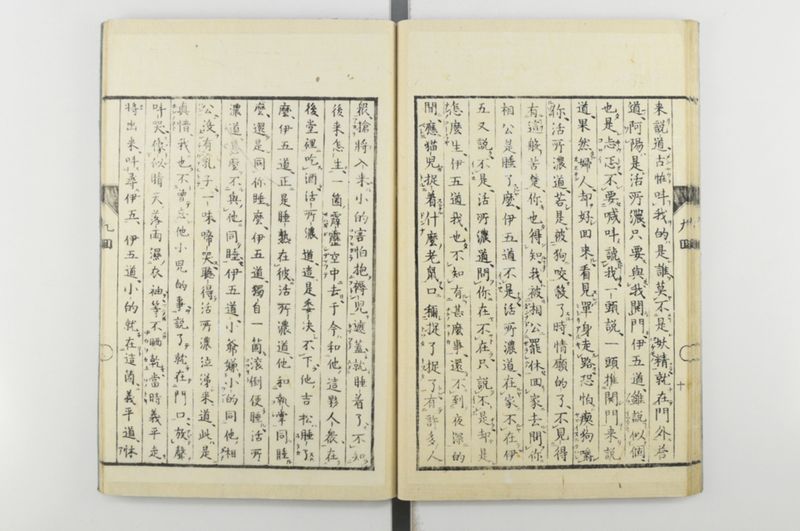 来説道古怕呌我的是誰莫不是妖精就在門外答
道阿陽是活所濃只要與我開門伊五道雖説似個
也是忘怎不要喊呌讓我一頭説一頭推開門来説
道果然婦人却好回来看見單身走路恐怕瘈狗嚼
你活所濃道若是被狗咬殺了時情願的了不見得
有這般苦楚你也得知我被相公罷休回家去問你
相公是睡了麼伊五道不是活所濃道在家不在伊
五又説不是活所濃道問你在不在只説不是却是
怎麼生伊五道我也不知有甚麼事還不到夜深的
聞應猫児捉着什麼老鼠口稱捉了捉了有許多人
搶將入来小的害怕抱褥児遮蓋就睡着了不知
後来怎生一箇霹靂空中去于今和他這夥人都在
後堂裡吃酒活所濃道這是委决不下他吉松睡了
麼伊五道正是睡熟在彼活所濃道他和執掌同睡
麼還是同你睡麼伊五道獨自一箇滚倒便睡活所
濃道為麼不與他同睡伊五道小爺嫌小的同他相
公没有乳子一味啼哭聽得活所濃泣涕来道此是
真情我也不曾忘他小児的事説了就在門口放聲
呌哭像似晴天落雨濕衣袖等不晒乾當時義平走
將出来呌尋伊五伊五道小的就在這箇義平道休